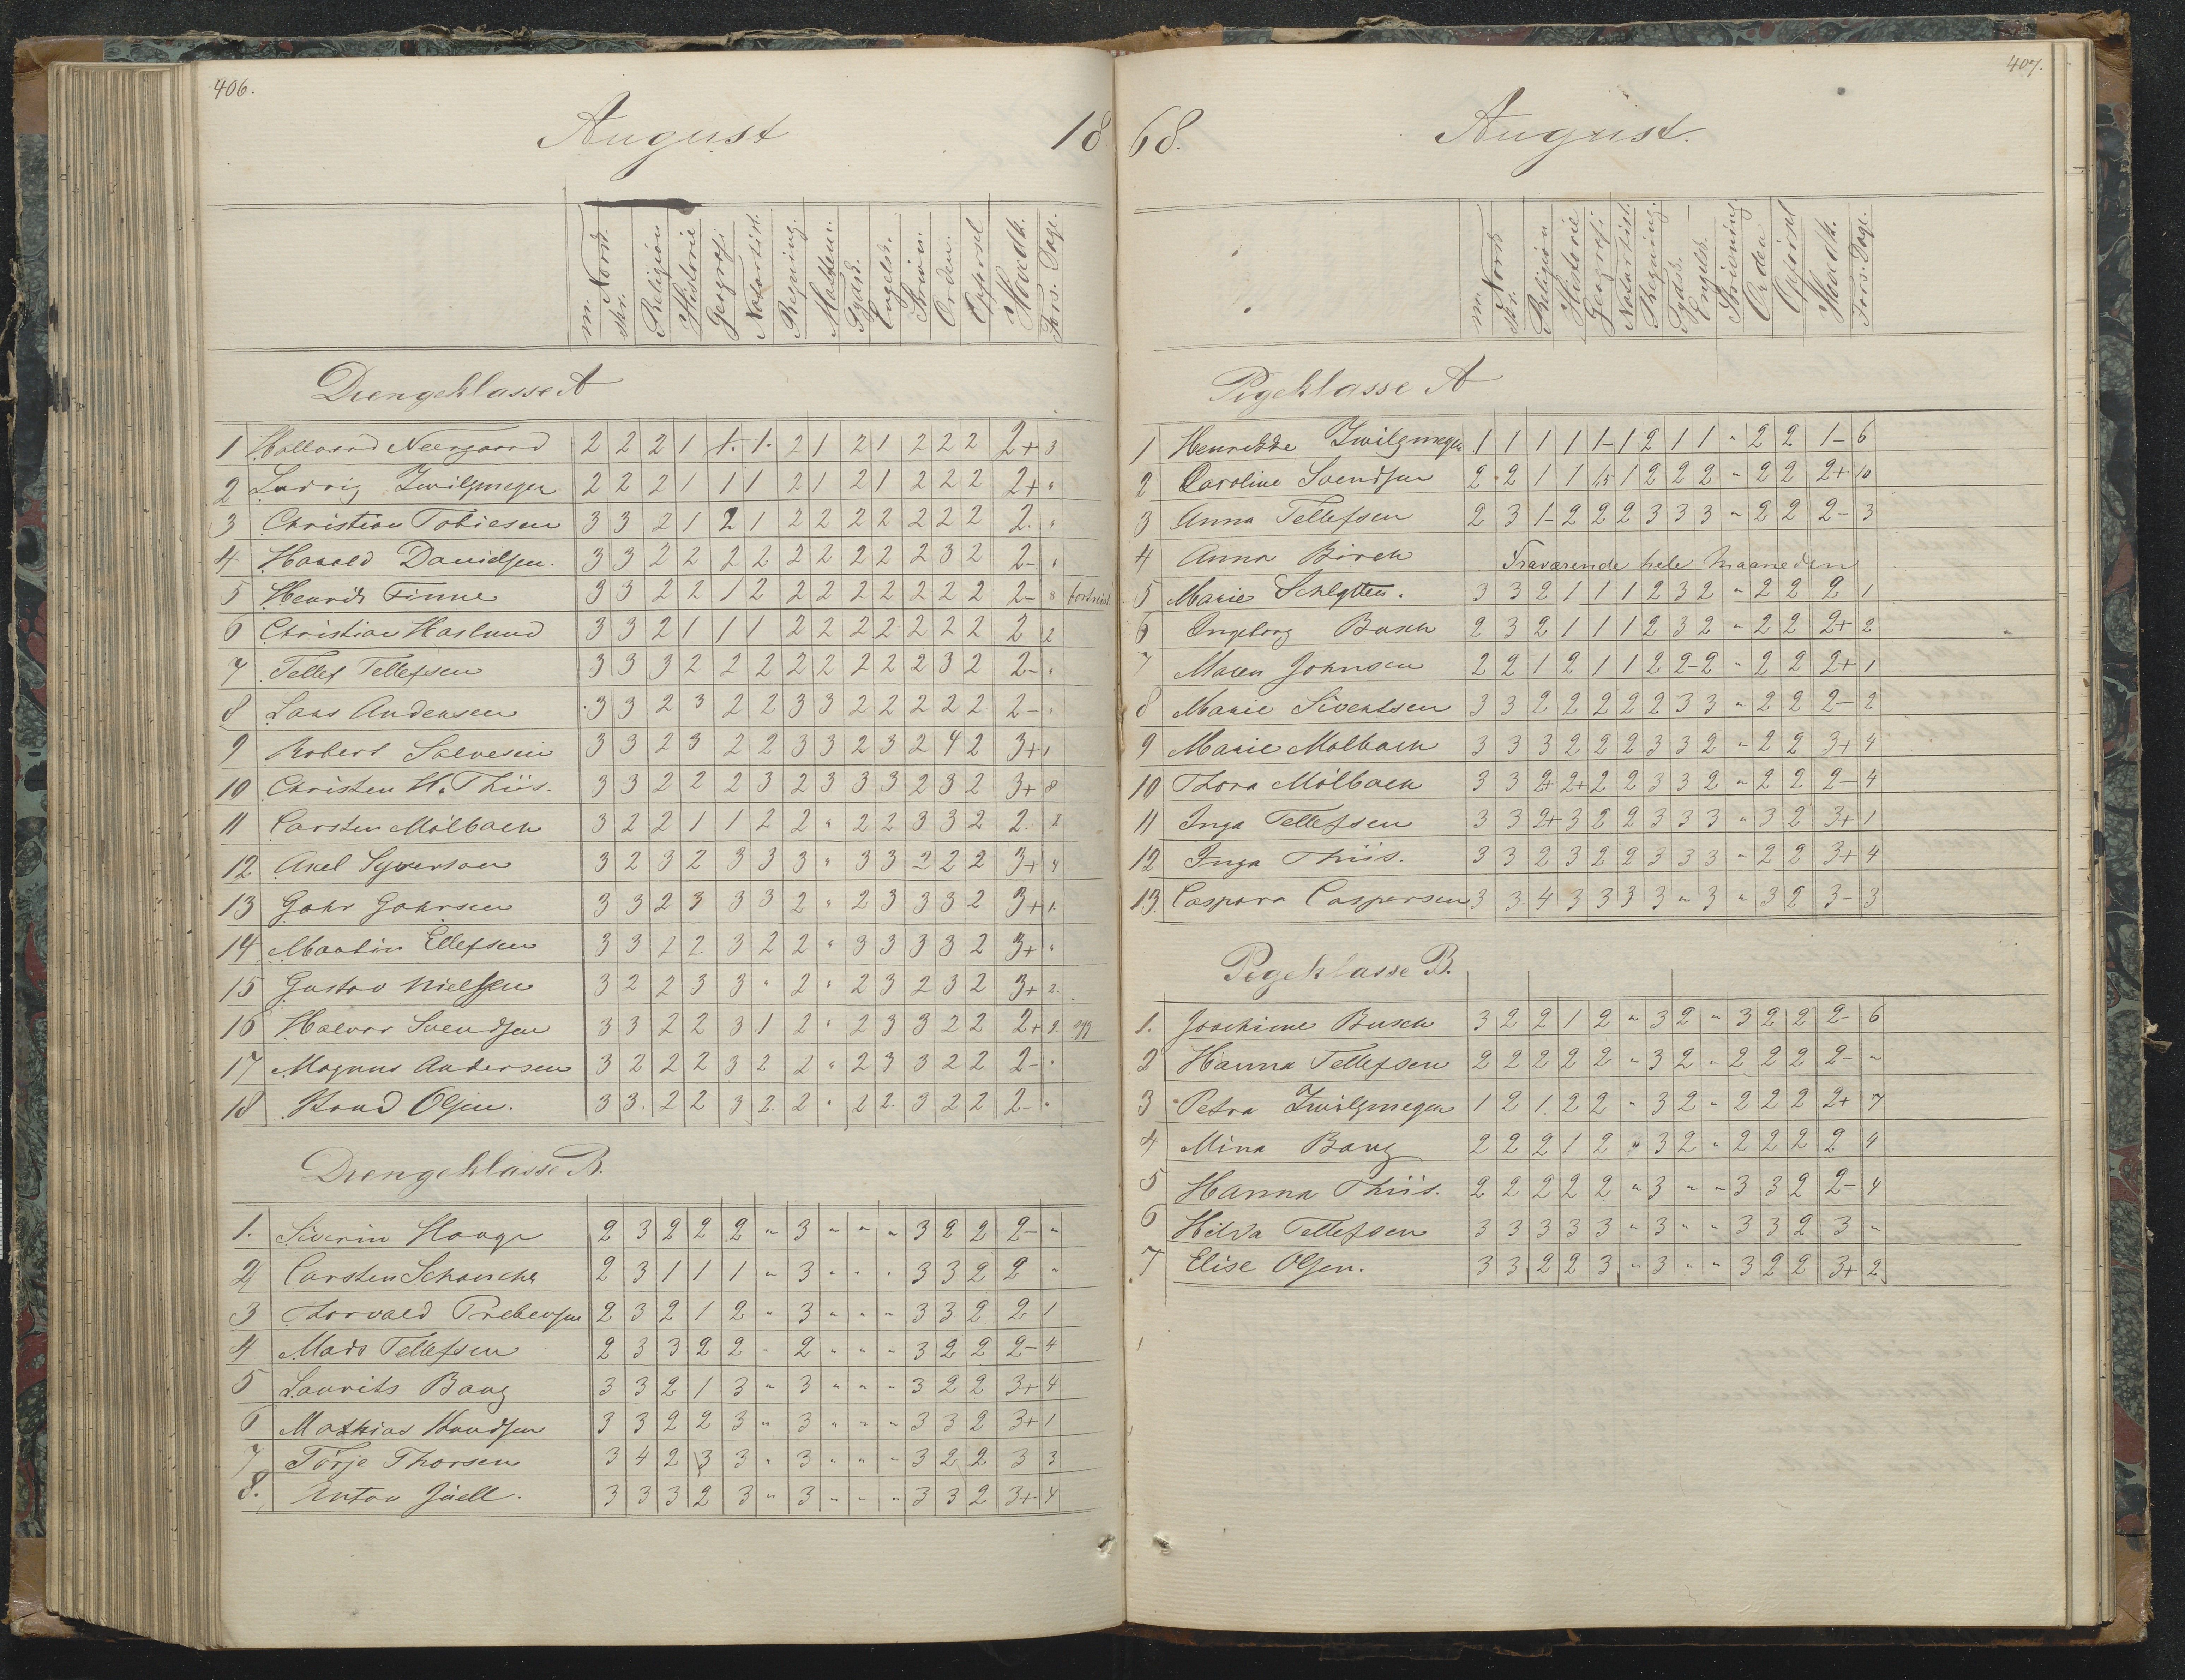 406.
August 18
m. Nord. skr. Religion Historie Geografi Naturhist. Regning. Mathem. Tydsk. Engelsk. Skrivn. Orden. Opførsel Hovedk. Fors. Dage.
Drengeklasse A
1 Hallvard Neergaard 2 2 2 1 1. 1. 2 1 2 1 2 2 2 2+ 3
2 Ludvig Zwilgmeyer 2 2 2 1 1 1 2 1 2 1 2 2 2 2+ "
3 Christian Tobiesen 3 3 2 1 2 1 2 2 2 2 2 2 2 2. "
4 Harald Danielsen. 3 3 2 2 2 2 2 2 2 2 2 3 2 2- "
5 Henrik Finne 3 3 2 2 1 2 2 2 2 2 2 2 2 2- 8
6 Christian Haslund 3 3 2 1 1 1 2 2 2 2 2 2 2 2 2
7 Tellef Tellefsen 3 3 3 2 2 2 2 2 2 2 2 3 2 2- "
8 Lars Andersen 3 3 2 3 2 2 3 3 2 2 2 2 2 2- "
9 Robert Salvesen 3 3 2 3 2 2 3 3 2 3 2 4 2 3+ 1
10 Christen H. Thiis. 3 3 2 2 2 3 2 3 3 3 2 3 2 3+ 8
11 Carsten Mölbach 3 2 2 1 1 2 2 " 2 2 3 3 2 2. 2
12 Axel Syverson 3 2 3 2 3 3 3 " 3 3 2 2 2 3+ 4
13 Gohr Gohrsen 3 3 2 3 3 3 2 " 2 3 3 3 2 3+ 1
14 Martin Ellefsen 3 3 2 2 3 2 2 " 3 3 3 3 2 3+ "
15 Gustav Nielsen 3 2 2 3 3 " 2 " 2 3 2 3 2 3+ 2
16 Halvor Svendsen 3 3 2 2 3 1 2 " 2 3 3 2 2 2+ 2
17 Magnus Andersen 3 2 2 2 3 2 2 " 2 3 3 2 2 2- "
18 Knud Olsen. 3 3. 2 2 3 2. 2 " 2 2. 3 2 2 2- "
Drengeklasse B.
1. Siverin Hauge 2 3 2 2 2 " 3 " " " 3 2 2 2- "
2 Carsten Schanche 2 3 1 1 1 " 3 " " " 3 3 2 2 "
3 Thorvald Prebensen 2 3 2 1 2 " 3 " " " 3 3 2 2 1
4 Mads Tellefsen 2 3 3 2 2 " 2 " " " 3 2 2 2- 4
5 Laurits Bang 3 3 2 1 3 " 3 " " " 3 2 2 3+ 4
6 Mathias Knudsen 3 3 2 2 3 " 3 " " " 3 3 2 3+ 1
7 Törje Thorsen 3 4 2 3 3 " 3 " " " 3 2 2 3 3
8. Anton Juell. 3 3 3 2 3 " 3 " " " 3 3 2 3+ 4
407.
68. August.
m. Nord. skr. Religion Historie Geografi Naturhist. Regning. Tydsk. Engelsk. Skrivning Orden Opførsel Hovedk. Fors. Dage.
Pigeklasse A
1 Henrikke Zwilgmeyer 1 1 1 1 1- 1 2 1 1 " 2 2 1- 6
2 Caroline Svendsen 2 2 1 1 1,5 1 2 2 2 " 2 2 2+ 10
3 Anna Tellefsen 2 3 1- 2 2 2 3 3 3 " 2 2 2- 3
4 Anna Birch Fraværende hele Maaneden
5 Marie Schlytter. 3 3 2 1 1 1 2 3 2 " 2 2 2 1
6 Ingeborg Busch 2 3 2 1 1 1 2 3 2 " 2 2 2+ 2
7 Maren Johnsen 2 2 1 2 1 1 2 2- 2 " 2 2 2+ 1
8 Marie Sivertsen 3 3 2 2 2 2 2 3 3 " 2 2 2- 2
9 Marie Mølbach 3 3 3 2 2 2 3 3 2 " 2 2 3+ 4
10 Thora Mölbach 3 3 2+ 2+ 2 2 3 3 2 " 2 2 2- 4
11 Inga Tellefsen 3 3 2+ 3 2 2 3 3 3 " 3 2 3+ 1
12 Inga Thiis. 3 3 2 3 2 2 3 3 3 " 2 2 3+ 4
13. Caspara Caspersen 3 3 4 3 3 3 3 " 3 " 3 2 3- 3
Pigeklasse B.
1. Joachime Busch 3 2 2 1 2 " 3 2 " 3 2 2 2- 6
2 Hanna Tellefsen 2 2 2 2 2 " 3 2 " 2 2 2 2- "
3 Petra Zwilgmeyer 1 2 1. 2 2 " 3 2 " 2 2 2 2+ 7
4 Mina Bang 2 2 2 1 2 " 3 2 " 2 2 2 2 4
5 Hanna Thiis. 2 2 2 2 2 " 3 " " 3 3 2 2- 4
6 Hilda Tellefsen 3 3 3 3 3 " 3 " " 3 3 2 3 "
7 Elise Olsen. 3 3 2 2 3 " 3 " " 3 2 2 3+ 2